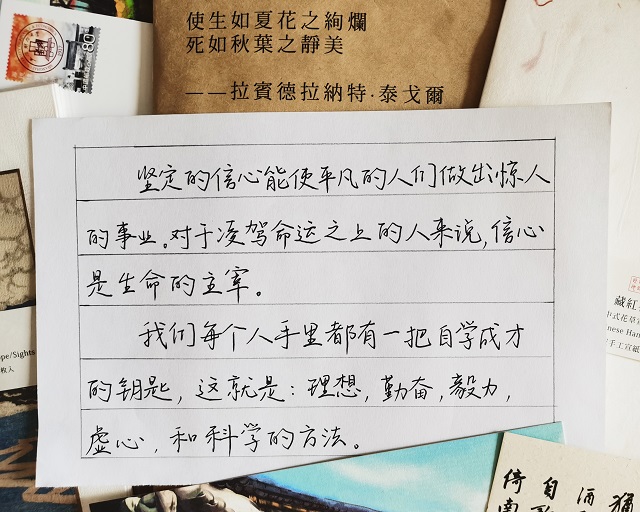 80
使生如夏花之絢爛
死如秋葉之靜美
——拉賓德拉納特·泰戈爾
坚定的信心能使平凡的人们做出惊人
的事业。对于凌驾命运之上的人来说,信心
是生命的主宰。
我们每个人手里都有一把自学成才
的钥匙,这就是:理想,勤奋,毅力,
虚心,和科学的方法。
藏紅
中式花草
nese Han
手工宣紙
pe/Sights
枚入
倚南
自
酒